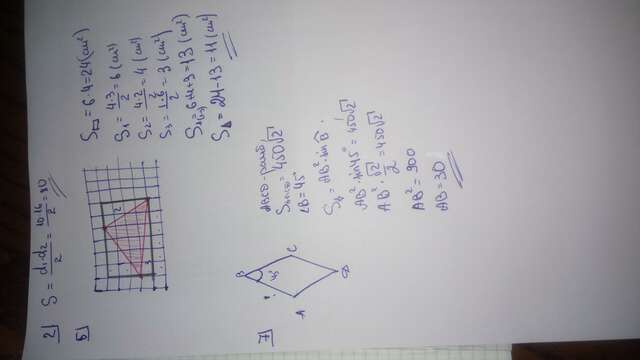 2] S = d₁·d₂/2 = 10·16/2 = 80
5]
2
3
S▭ = 6·4 = 24 (cm²)
S₁ = 4·3/2 = 6 (cm²)
S₂ = 4·2/2 = 4 (cm²)
S₃ = 1·6/2 = 3 (cm²)
= 6+4+3 = 13 (cm²)
S△ = 24-13 = 11 (cm²)
7]
B
45°
A
C
ABCD -
= 450√2
∠B = 45°
= AB²·sin B
AB²·sin45° = 450√2
AB²·√2/2 = 450√2
AB² = 900
AB = 30